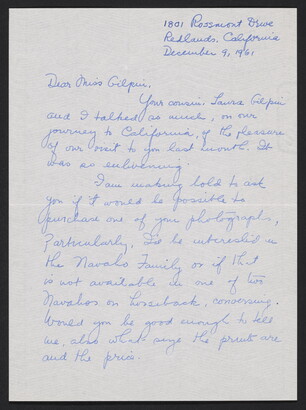 1801 Rossmont Drive
Redlands, California
December 9, 1961
Dear Miss Gilpin,
Your cousin, Laura Gilpin
and I talked as much, on our
journey to California, of the pleasure
of our visit to you last month. It
was so enlivening.
I am making bold to ask
you if it would be possible to
purchase one of your photographs,
Particularly, I'd be interested in
the Navaho Family or if that
is not available in one of two
Navahos on horseback, conversing.
Would you be good enough to tell
me, also what size the prints are
and the price.